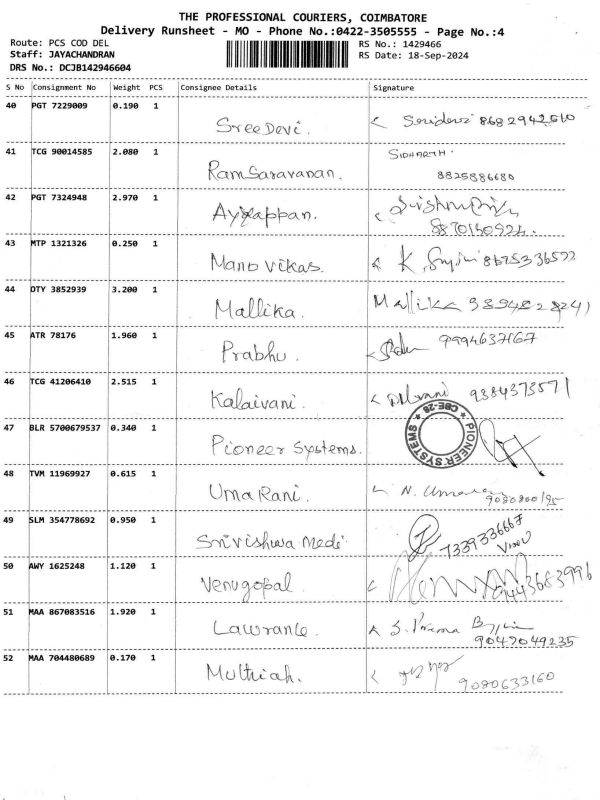 THE PROFESSIONAL COURIERS, COIMBATORE
Delivery Runsheet - MO - Phone No.:0422-3505555 - Page No.:4
Route: PCS COD DEL
RS No.: 1429466
Staff: JAYACHANDRAN
RS Date: 18-Sep-2024
DRS No.: DCJB142946604
S No Consignment No Weight PCS Consignee Details Signature
40 PGT 7229009 0.190 1
SreeDevi.
41 TCG 90014585 2.080 1 SIDHARTH.
RamSaravanan. 8825886680
42 PGT 7324948 2.970 1
Ayyappan.
43 MTP 1321326 0.250 1
Mano vikas. K.
44 DTY 3852939 3.200 1
Mallika. Mallika
45 ATR 78176 1.960 1
Prabhu. 9994637167
46 TCG 41206410 2.515 1
Kalaivani. 9384373571
47 BLR 5700679537 0.340 1
Pioneer Systems. PIONEER SYSTEMS CBE-28
48 TVM 11969927 0.615 1
Uma Rani. N.
49 SLM 354778692 0.950 1
Srivishwa Medi 7339336667
50 AWY 1625248 1.120 1
Venugopal
51 MAA 867083516 1.920 1
Lawrance. S. Prema
9047049235
52 MAA 704480689 0.170 1
Muthiah. 9080633160